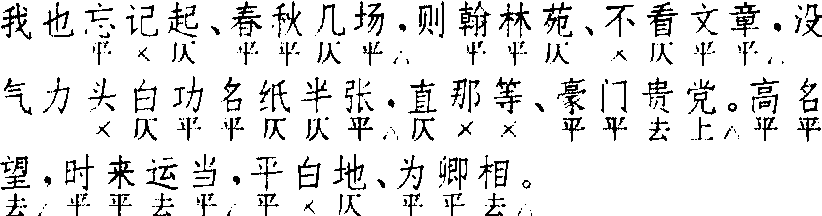 我也忘记起、春秋几场，则翰林苑、不看文章，没
平×仄 平平仄平△ 平平仄 ×仄平平△
气力头白功名纸半张，直那等、豪门贵党。高名
×仄平平仄仄平△仄×× 平平去上△平平
望，时来运当，平白地、为卿相。
去△平平去平△平×仄 平平去△